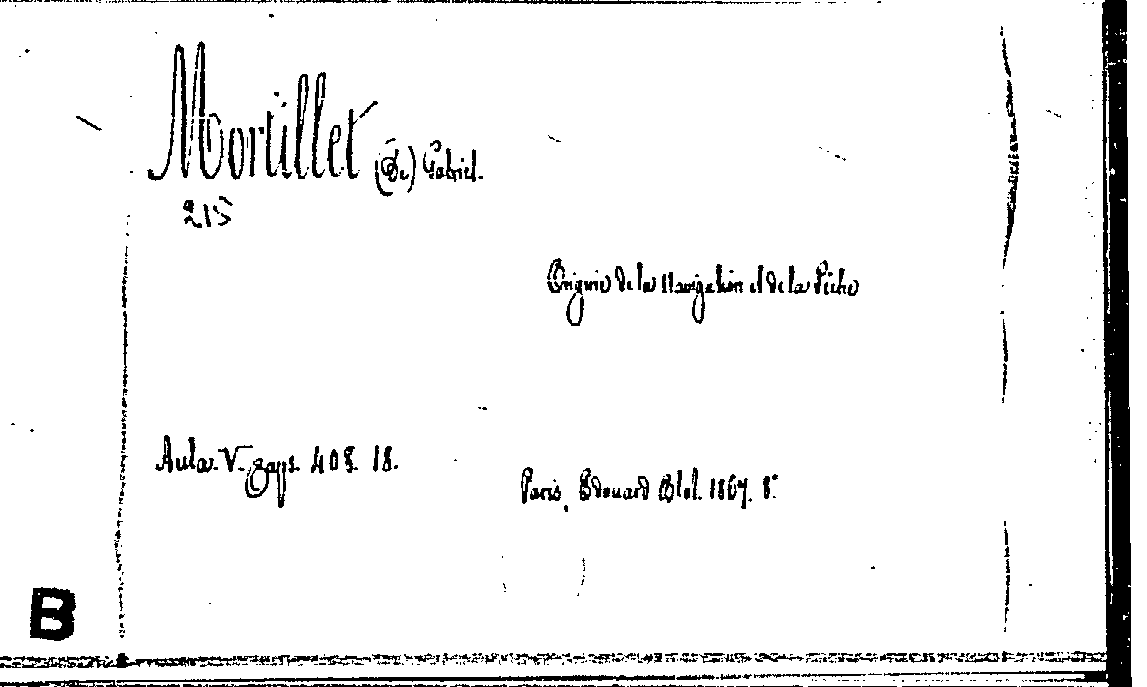 Mortillet (De) Gabriel.
215
Origine de la Navigation et de la Pêche
Aula. V. gaps. 408. 18.
Paris, Edouard Blot. 1867. 8°
B